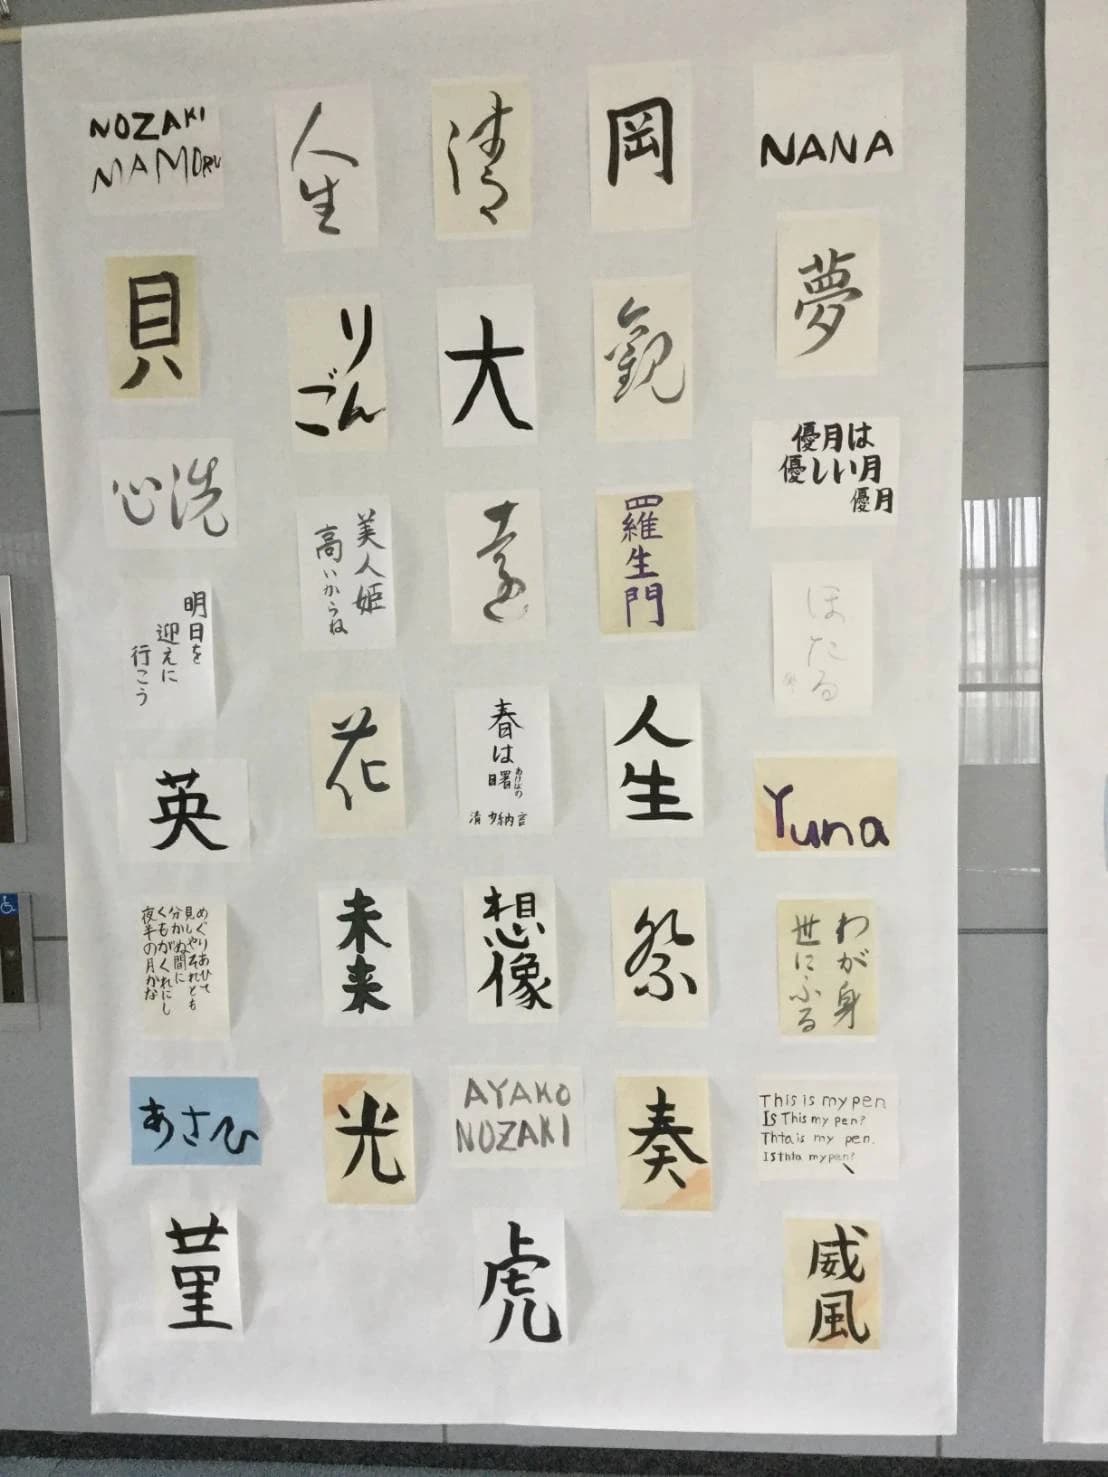 NOZAKI
MAMORU
人生
清
岡
NANA
貝
りんご
大
観
夢
洗心
美人姫
高いからね
羅生門
優月は
優しい月
優月
明日を
迎えに
行こう
ほたる
花
春は曙
あけぼの
清少納言
人生
英
Yuna
めぐりあひて
見しやそれとも
分かぬ間に
くもがくれにし
夜半の月かな
未来
想像
祭
わが身
世にふる
あさひ
光
AYAKO
NOZAKI
奏
This is my pen
Is This my pen?
Thtais my pen.
Isthta my pen?
菫
虎
威風